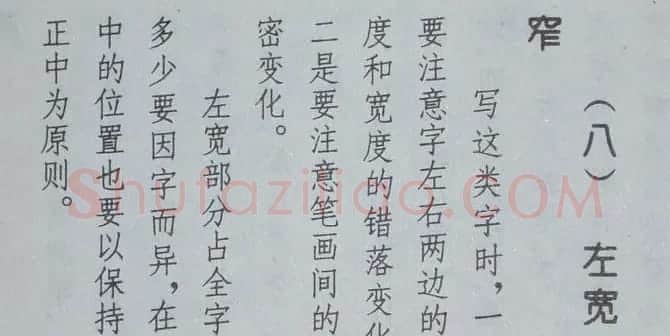 （八） 左宽
窄
写这类字时，一
要注意字左右两边的
度和宽度的错落变化
二是要注意笔画间的
密变化。
左宽部分占全字
多少要因字而异，在
中的位置也要以保持
正中为原则。
Shufaziliao.COM